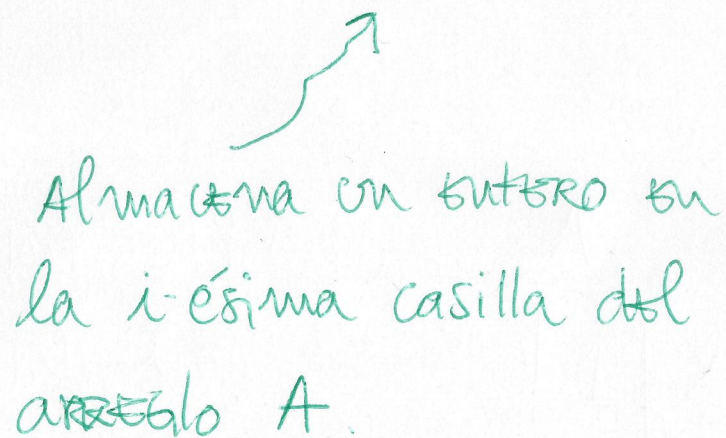 Almacena un entero en
la i-ésima casilla del
arreglo A.